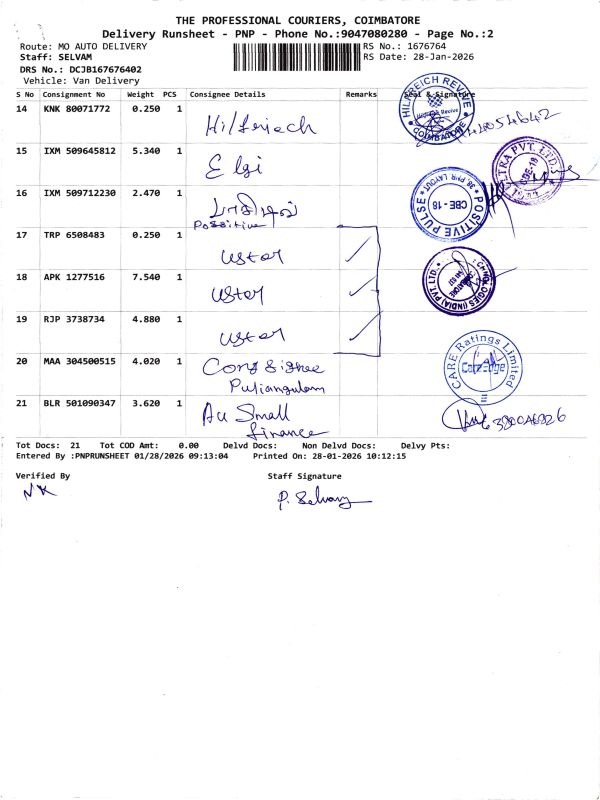 THE PROFESSIONAL COURIERS, COIMBATORE
Delivery Runsheet - PNP - Phone No.:9047080280 - Page No.:2
Route: MO AUTO DELIVERY RS No.: 1676764
Staff: SELVAM RS Date: 28-Jan-2026
DRS No.: DCJB167676402
Vehicle: Van Delivery
S No Consignment No Weight PCS Consignee Details Remarks Seal & Signature
14 KNK 80071772 0.250 1
HILFREICH REVIVE
COIMBATORE
15 IXM 509645812 5.340 1 Elgi
PVT. LTD.
CBE-18
16 IXM 509712230 2.470 1
Possitive
POSITIVE PULSE
CBE - 18
17 TRP 6508483 0.250 1 Uster
18 APK 1277516 7.540 1 Uster
(INDIA) PVT. LTD.
19 RJP 3738734 4.880 1 Uster
20 MAA 304500515 4.020 1
Puliangulam
CARE Ratings Limited
CareEdge
21 BLR 501090347 3.620 1 Au Small
finance
Tot Docs: 21 Tot COD Amt: 0.00 Delvd Docs: Non Delvd Docs: Delvy Pts:
Entered By :PNPRUNSHEET 01/28/2026 09:13:04 Printed On: 28-01-2026 10:12:15
Verified By Staff Signature
P. Selvam